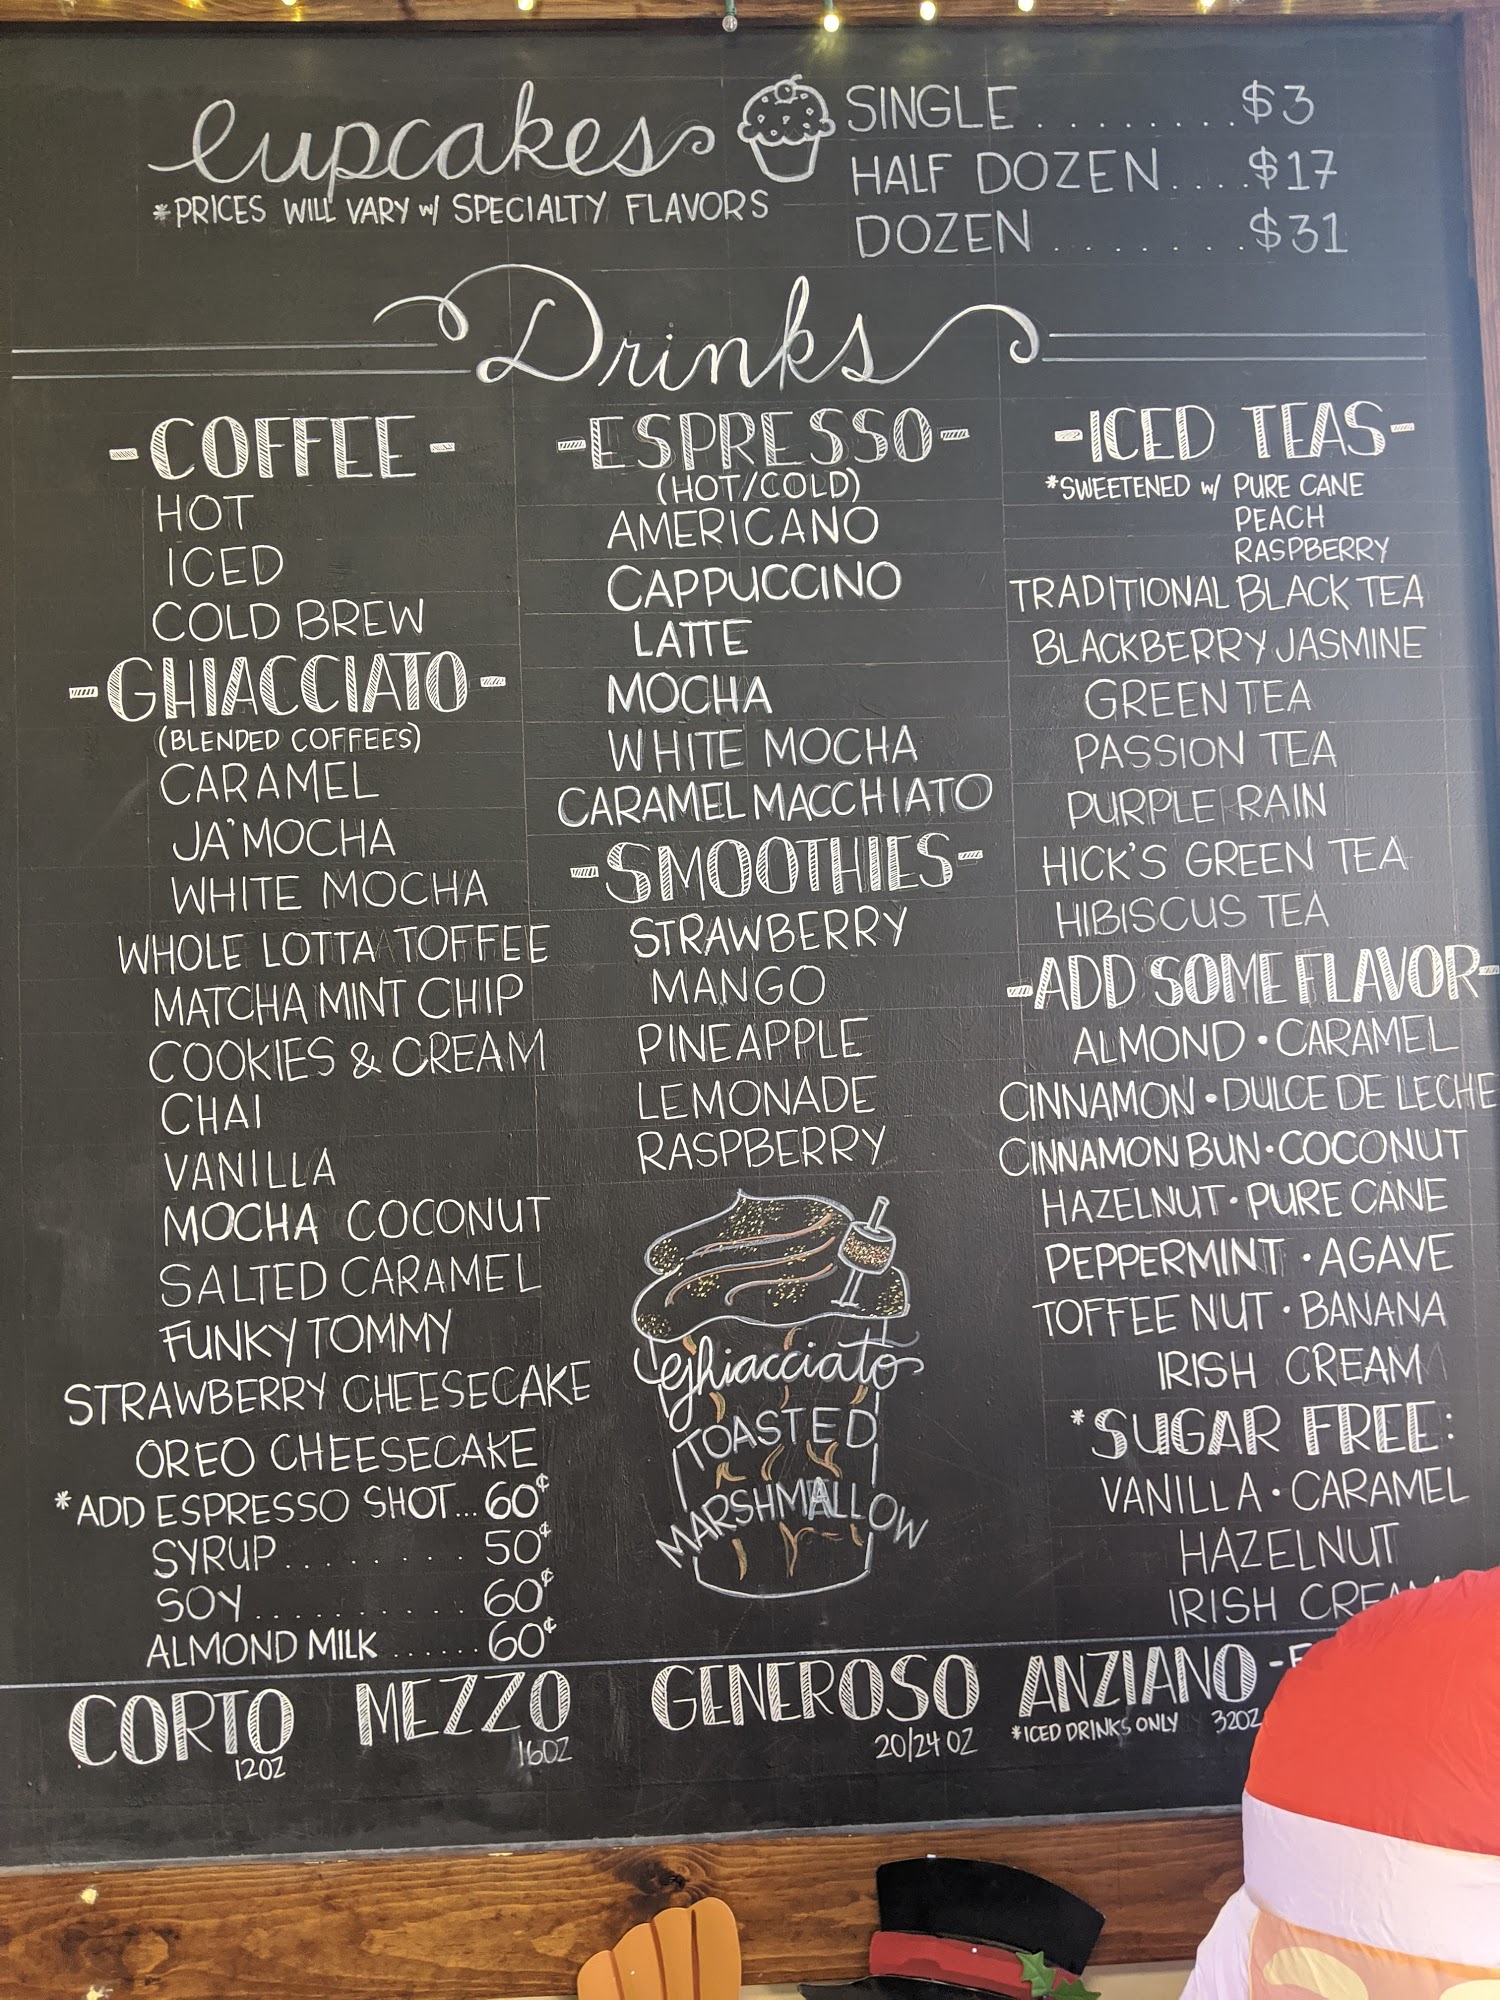 cupcakes
*PRICES WILL VARY w/ SPECIALTY FLAVORS
SINGLE . . . . . . . . . $3
HALF DOZEN . . . . $17
DOZEN . . . . . . . . $31
Drinks
-COFFEE-
HOT
ICED
COLD BREW
-GHIACCIATO-
(BLENDED COFFEES)
CARAMEL
JA'MOCHA
WHITE MOCHA
WHOLE LOTTA TOFFEE
MATCHA MINT CHIP
COOKIES & CREAM
CHAI
VANILLA
MOCHA COCONUT
SALTED CARAMEL
FUNKY TOMMY
STRAWBERRY CHEESECAKE
OREO CHEESECAKE
*ADD ESPRESSO SHOT... 60¢
SYRUP . . . . . . . . . 50¢
SOY . . . . . . . . . . 60¢
ALMOND MILK . . . . . . 60¢
-ESPRESSO-
(HOT/COLD)
AMERICANO
CAPPUCCINO
LATTE
MOCHA
WHITE MOCHA
CARAMEL MACCHIATO
-SMOOTHIES-
STRAWBERRY
MANGO
PINEAPPLE
LEMONADE
RASPBERRY
Ghiacciato
TOASTED
MARSHMALLOW
-ICED TEAS-
*SWEETENED w/ PURE CANE
PEACH
RASPBERRY
TRADITIONAL BLACK TEA
BLACKBERRY JASMINE
GREEN TEA
PASSION TEA
PURPLE RAIN
HICK'S GREEN TEA
HIBISCUS TEA
-ADD SOME FLAVOR-
ALMOND • CARAMEL
CINNAMON • DULCE DE LECHE
CINNAMON BUN • COCONUT
HAZELNUT • PURE CANE
PEPPERMINT • AGAVE
TOFFEE NUT • BANANA
IRISH CREAM
*SUGAR FREE:
VANILLA • CARAMEL
HAZELNUT
IRISH CREAM
CORTO MEZZO GENEROSO ANZIANO -
12OZ 16OZ 20/24 OZ *ICED DRINKS ONLY 32OZ